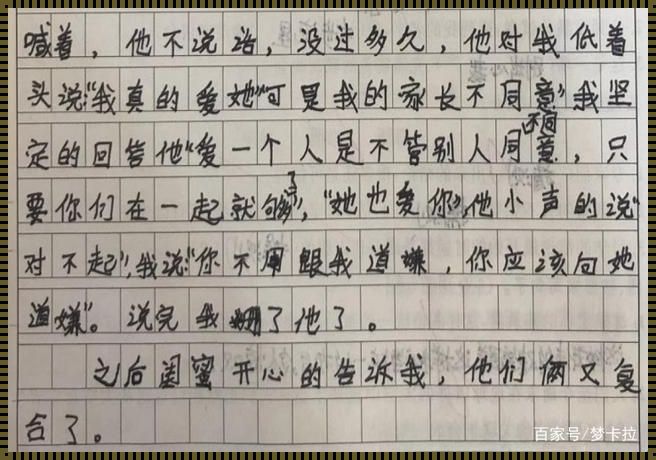 喊着，他不说话，没过多久，他对我低着
头说“我真的爱她”“可是我的家长不同意”我坚
定的回答他“爱一个人是不管别人同不同意，只
要你们在一起就够了”，“她也爱你”，他小声的说“
对不起”，我说：“你不用跟我道嫌，你应该向她
道嫌”。说完我了他了。
之后闺蜜开心的告诉我，他们俩又复
合了。
百家号/梦卡拉